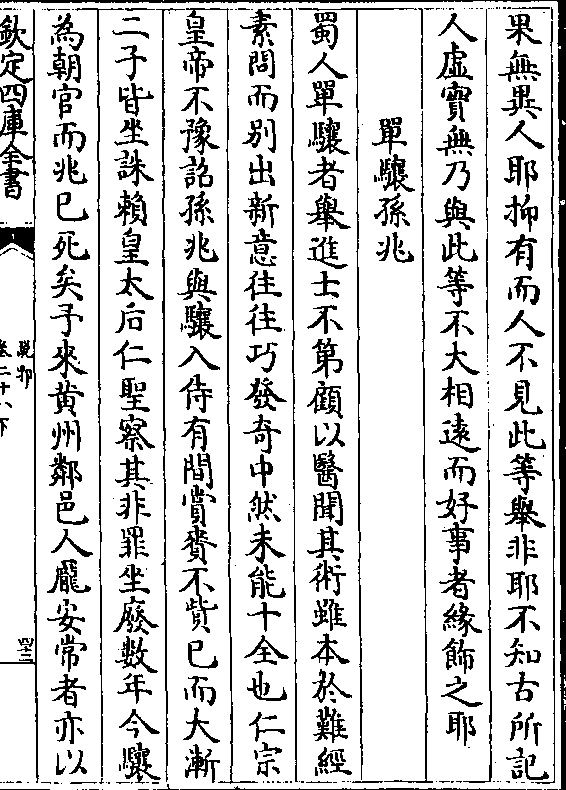 果無異人耶抑有而人不見此等舉非耶不知古所記
人虛實無乃與此等不大相逺而好事者緣飾之耶
單驤孫兆
蜀人單驤者舉進士不第顧以醫聞其術雖本於難經
素問而別出新意往往巧發奇中然未能十全也仁宗
皇帝不豫詔孫兆與驤入侍有間賞賚不貲已而大漸
二子皆坐誅賴皇太后仁聖察其非罪坐廢數年今驤
為朝官而兆已死矣予來黄州鄰邑人龐安常者亦以
欽定四庫全書
說郛
卷二十八下
四十三